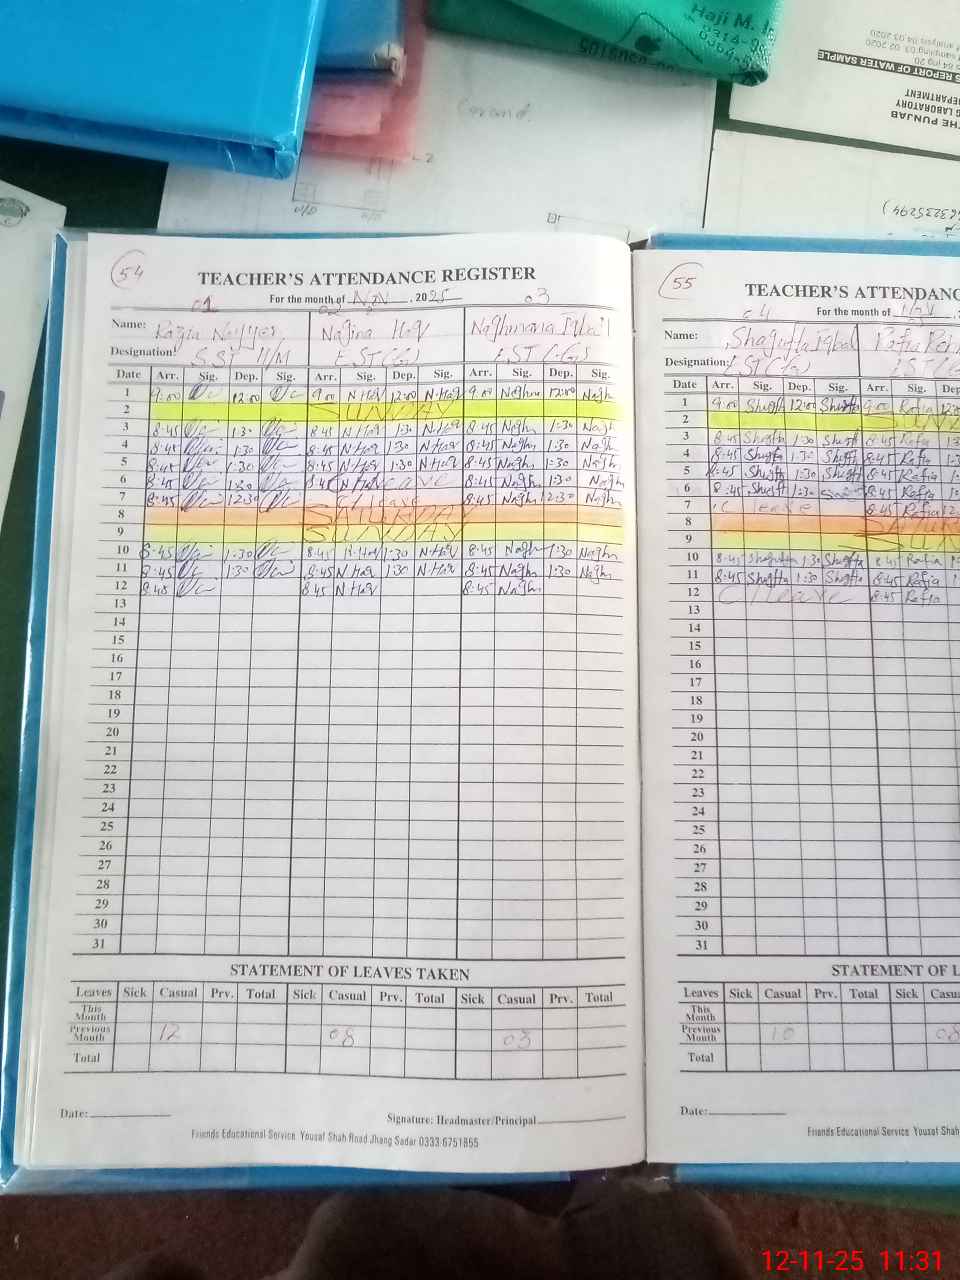 Haji M.
Cavand.
W/D
THE PUNJAB
LABORATORY
REPORT OF WATER SAMPLE
54
TEACHER'S ATTENDANCE REGISTER
For the month of Nov , 2025
01 02 03
Name: Razia Nayyer Najina Haq Naghmana Iqbal
Designation: SST H/M EST(G) EST(G)
Date Arr. Sig. Dep. Sig. Arr. Sig. Dep. Sig. Arr. Sig. Dep. Sig.
1 9:00 12:00 9:00 N Haq 12:00 N Haq 9:00 Naghma 12:00 Nagh
2 SUNDAY
3 8:45 1:30 8:45 N Haq 1:30 N Haq 8:45 Naghm 1:30 Nagh
4 8:45 1:30 8:45 N Haq 1:30 N Haq 8:45 Naghm 1:30 Nagh
5 8:45 1:30 8:45 N Haq 1:30 N Haq 8:45 Naghm 1:30 Naghm
6 8:45 1:30 leave 8:45 Naghm 1:30 Nagh
7 8:45 12:30 C leave 8:45 Naghm 12:30 Nagh
8 SATURDAY
9 SUNDAY
10 8:45 1:30 8:45 N Haq 1:30 N Haq 8:45 Nagh 1:30 Naghm
11 8:45 1:30 8:45 N Haq 1:30 N Haq 8:45 Naghm 1:30 Naghm
12 8:45 8:45 N Haq 8:45 Naghm
13
14
15
16
17
18
19
20
21
22
23
24
25
26
27
28
29
30
31
STATEMENT OF LEAVES TAKEN
Leaves Sick Casual Prv. Total Sick Casual Prv. Total Sick Casual Prv. Total
This Month
Previous Month 12 08 03
Total
Date: Signature: Headmaster/Principal
Friends Educational Service Yousaf Shah Road Jhang Sadar 0333 6751855
55
TEACHER'S ATTENDANC
For the month of Nov
04
Name: Shagufta Iqbal Rafia
Designation: EST(G) EST
Date Arr. Sig. Dep. Sig. Arr. Sig. De
1 9:00 Shagft 12:00 Shagft 9:00 Rafia 12:00
2 SUND
3 8:45 Shagfta 1:30 Shagft 8:45 Rafia 1:3
4 8:45 Shagfta 1:30 Shagft 8:45 Rafia 1:3
5 8:45 Shagfta 1:30 Shagft 8:45 Rafia
6 8:45 Shagft 1:30 8:45 Rafia
7 C leave 8:45 Rafia 12
8 SATUR
9 SUN
10 8:45 Shagufta 1:30 Shagft 8:45 Rafia
11 8:45 Shagfta 1:30 Shagfta 8:45 Rafia
12 C leave 8:45 Rafia
13
14
15
16
17
18
19
20
21
22
23
24
25
26
27
28
29
30
31
STATEMENT OF L
Leaves Sick Casual Prv. Total Sick Casu
This Month
Previous Month 10 08
Total
Date:
Friends Educational Service Yousaf Shah
12-11-25 11:31